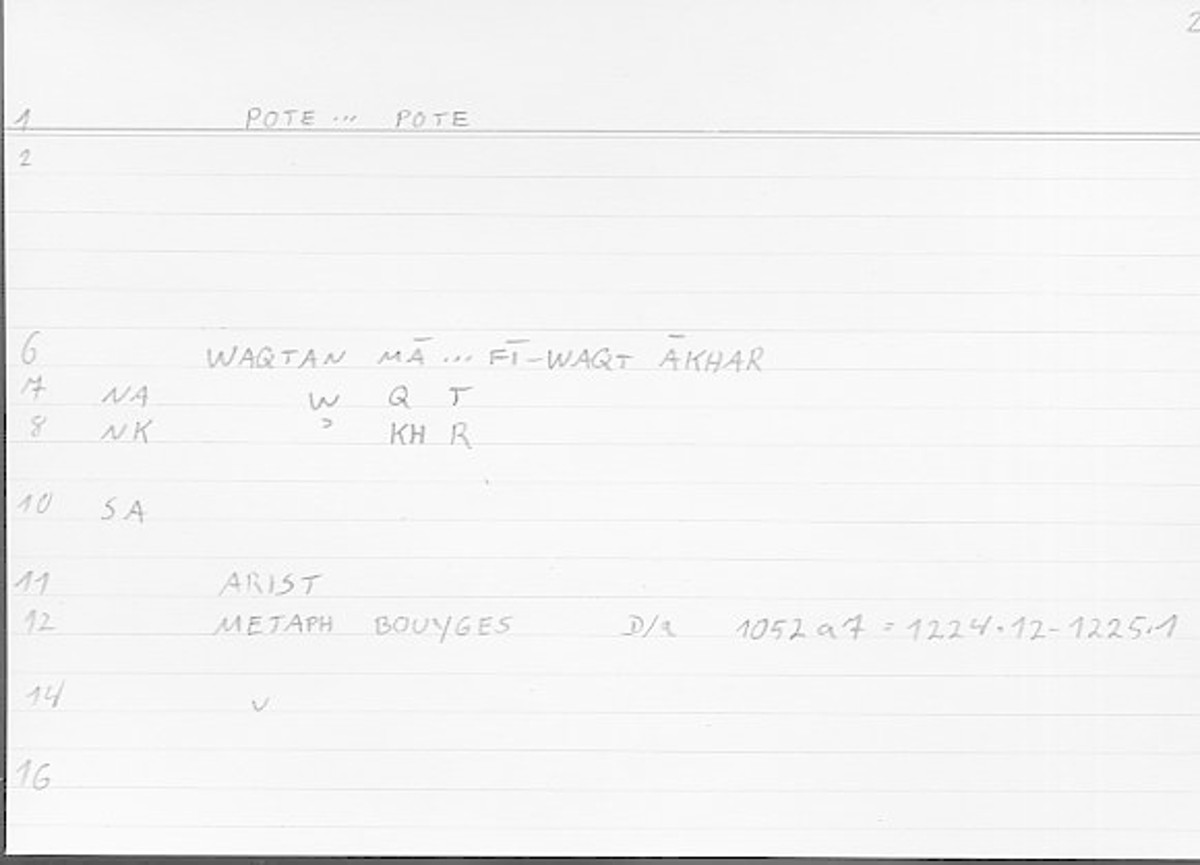 2
1 POTE ... POTE
2
6 WAQTAN MĀ ... FĪ-WAQT ĀKHAR
7 NA W Q T
8 NK ɔ KH R
10 SA
11 ARIST
12 METAPH BOUYGES D/a 1052 a 7 = 1224.12-1225.1
14 ᴗ
16